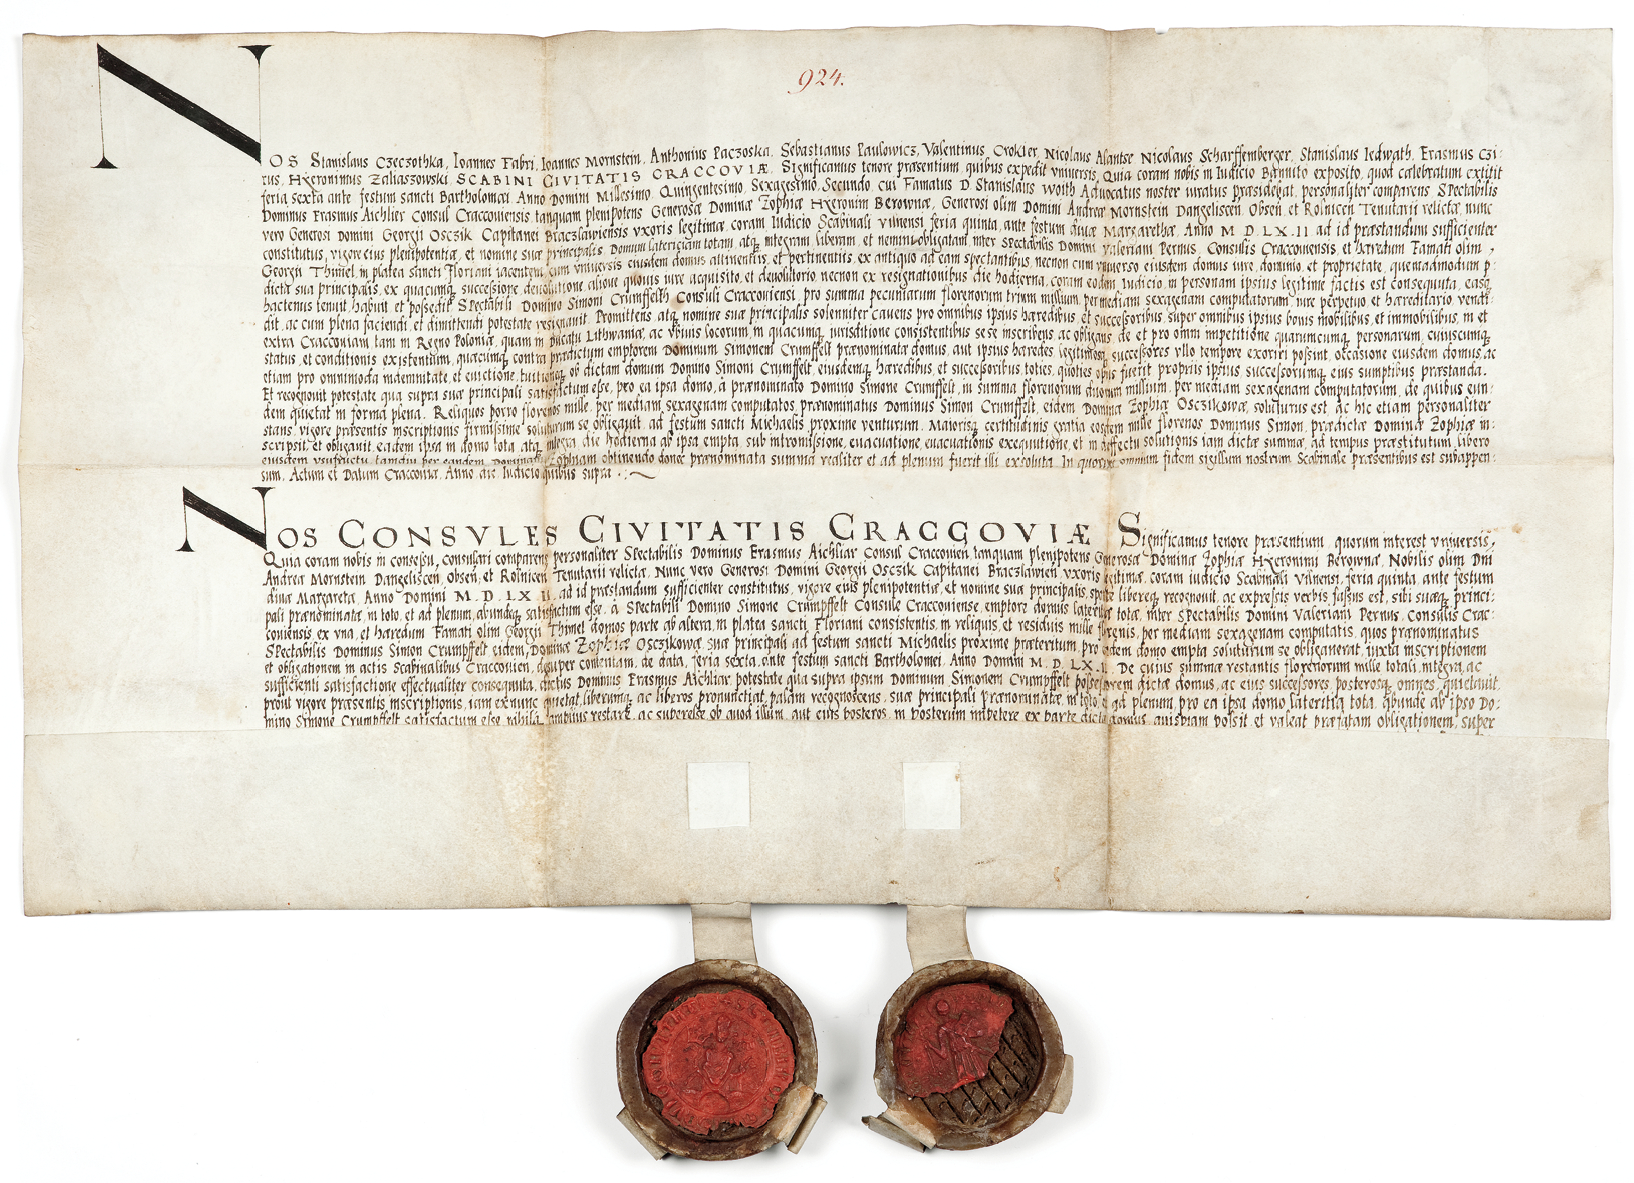 924.
NOS Stanislaus Czeczothka, Ioannes Fabri, Ioannes Mornstein, Anthonius Paczoska, Sebastianus Paulowicz, Valentinus Crokier, Nicolaus Alantse Nicolaus Scharffemberger, Stanislaus Iedwath, Erasmus Czi-
rus, Hyeronimus Zaliaszowski, SCABINI CIVITATIS CRACCOVIÆ. Significamus tenore præsentium, quibus expedit vniuersis, Quia coram nobis in Iudicio Bannito exposito, quod celebratum extitit
feria sexta ante festum sancti Bartholomæi, Anno Domini Millesimo, Quingentesimo, Sexagesimo, Secundo, cui Famatus D. Stanislaus Woith Aduocatus noster iuratus præsidebat, personaliter comparens Spectabilis
Dominus Erasmus Aichler Consul Craccouiensis, tanquam plenipotens Generosæ Dominæ Zophiæ Hyeronim Berownæ, Generosi olim Domini Andreæ Mornstein Dangeliscen, Obsen, et Rolnicen Tenutarii relictæ, nunc
vero Generosi Domini Georgii Osczik Capitanei Braczlawiensis vxoris legitimæ, coram Iudicio Scabinali Vilnensi feria quinta, ante festum diuæ Margarethæ, Anno M D LX II ad id præstandum sufficienter
constitutus, vigore eius plenipotentiæ, et nomine suæ principalis Domum lateritiam totam, atq integram, liberam, et nemini obligatam inter Spectabilis Domini Valeriani Pernus, Consulis Craccouiensis, et hæredum Famati olim
Georgii Thimel, in platea sancti Floriani iacentem, cum vniuersis eiusdem domus attinentiis, et pertinentiis, ex antiquo ad eam spectantibus, necnon cum vniuerso eiusdem domus iure, dominio, et proprietate, quemadmodum p-
dicta sua principalis, ex quacunq successione, deuolutione, aliove quouis iure acquisito, et deuolutorio necnon ex resignationibus die hodierna, coram eodem Iudicio, in personam ipsius legitime factis est consequuta, easq
hactenus tenuit, habuit, et possedit Spectabili Domino Simoni Crumffelth Consuli Craccouiensi, pro summa pecuniarum florenorum trium millium, per mediam sexagenam computatorum, iure perpetuo, et hæreditario vendi-
dit, ac cum plena faciendi, et dimittendi potestate resignauit. Promittens, atq nomine suæ principalis solenniter cauens pro omnibus ipsius hæredibus, et successoribus, super omnibus ipsius bonis mobilibus, et immobilibus, in et
extra Craccouiam tam in Regno Poloniæ, quam in Ducatu Lithwaniæ, ac vbiuis locorum, in quacunq iurisditione consistentibus sese inscribens ac obligans, de et pro omni impetitione quarumcunq personarum, cuiuscunq
status, et conditionis existentium, quæcunq contra prædictum emptorem Dominum Simonem Crumffelt prænominatæ domus, aut ipsius hæredes legitimosq successores vllo tempore exoriri possint, occasione eiusdem domus, ac
etiam pro omnimoda indemnitate, et euictione, tuitioneq ob dictam domum Domino Simoni Crumffelt, eiusdemq hæredibus, et successoribus, toties, quoties opus fuerit propriis ipsius, successorumq eius sumptibus præstanda.
Et recognouit potestate qua supra suæ principali satisfactum esse, pro ea ipsa domo, à prænominato Domino Simone Crumffelt, in summa florenorum duorum millium, per mediam sexagenam computatorum, de quibus eun-
dem quietat in forma plena. Reliquos porro florenos mille, per mediam sexagenam computatos, prænominatus Dominus Simon Crumffelt, eidem Dominæ Zophiæ Osczikowæ, soluturus est, ac hic etiam personaliter
stans, vigore præsentis inscriptionis firmissime soluturum se obligauit, ad festum sancti Michaelis, proxime venturum. Maiorisq certitudinis gratia eosdem mille florenos Dominus Simon, prædictæ Dominæ Zophiæ in-
scripsit, et obligauit, eadem ipsa in domo tota, atq integra die hodierna ab ipsa empta, sub intromissione, euacuatione, euacuationis exequutione, et in deffectu solutionis iam dictæ summæ, ad tempus præstitutum, libero
eiusdem vsufructu, tamdiu per eandem Dominam Zophiam obtinendo donec prænominata summa realiter et ad plenum fuerit illi exoluta. In quorum omnium fidem sigillum nostrum Scabinale præsentibus est subappen-
sum. Actum et Datum Craccouiæ, Anno, die Iudicio quibus supra.
NOS CONSVLES CIVITATIS CRACCOVIÆ Significamus tenore præsentium, quorum interest vniuersis,
Quia coram nobis in consessu, consulari comparens personaliter Spectabilis Dominus Erasmus Aichliar Consul Craccouien, tanquam plenipotens Generosæ Dominæ Zophiæ Hyeronimi Berownæ, Nobilis olim Dni
Andreæ Mornstein Dangeliscen, obsen, et Rolnicen Tenutarii relictæ, Nunc vero Generosi Domini Georgii Osczik Capitanei Braczlawien, vxoris legitimæ, coram iudicio Scabinali Vilnensi, feria quinta, ante festum
diuæ Margaretæ, Anno Domini M. D. LX II, ad id præstandum sufficienter constitutus, vigore eius plenipotentiæ, et nomine suæ principalis, sponte libereq recognouit, ac expressis verbis fassus est, sibi suæq princi-
pali prænominatæ in toto, et ad plenum, abundeq, satisfactum esse, à Spectabili Domino Simone Crumpffelt Consule Craccouiense, emptore domus lateritiæ totæ, inter Spectabilis Domini Valeriani Pernus, Consulis Crac-
couiensis, ex vna, et hæredum Famati olim Georgii Thimel domos parte ab altera, in platea sancti Floriani consistentis, in reliquis, et residuis mille florenis, per mediam sexagenam computatis, quos prænominatus
Spectabilis Dominus Simon Crumpffelt eidem, Dominæ Zophiæ Osczikowæ, suæ principali ad festum sancti Michaelis proxime præteritum, pro eadem domo empta soluturum se obligauerat, iuxta inscriptionem
et obligationem in actis Scabinalibus Craccouien, desuper contentam, de data, feria sexta, ante festum sancti Bartholomei, Anno Domini M. D. LX. I. De cuius summæ restantis florenorum mille totali, integra, ac
sufficienti satisfactione effectualiter consequuta, dictus Dominus Erasmus Aichliar potestate qua supra ipsum Dominum Simonem Crumpffelt possessorem dictæ domus, ac eius successores, posterosq omnes, quietauit,
prout vigore præsentis inscriptionis, iam ex nunc quietat, liberumq, ac liberos pronunciat, palam recognoscens, suæ principali prænominatæ, in toto, et ad plenum, pro ea ipsa domo lateritia tota, abunde ab ipso Do-
mino Simone Crumpffelt satisfactum esse, nihilq amplius restare, ac superesse ob quod illum, aut eius posteros, in posterum impetere, ex parte dictæ domus, quispiam possit, et valeat præfatam obligationem, super